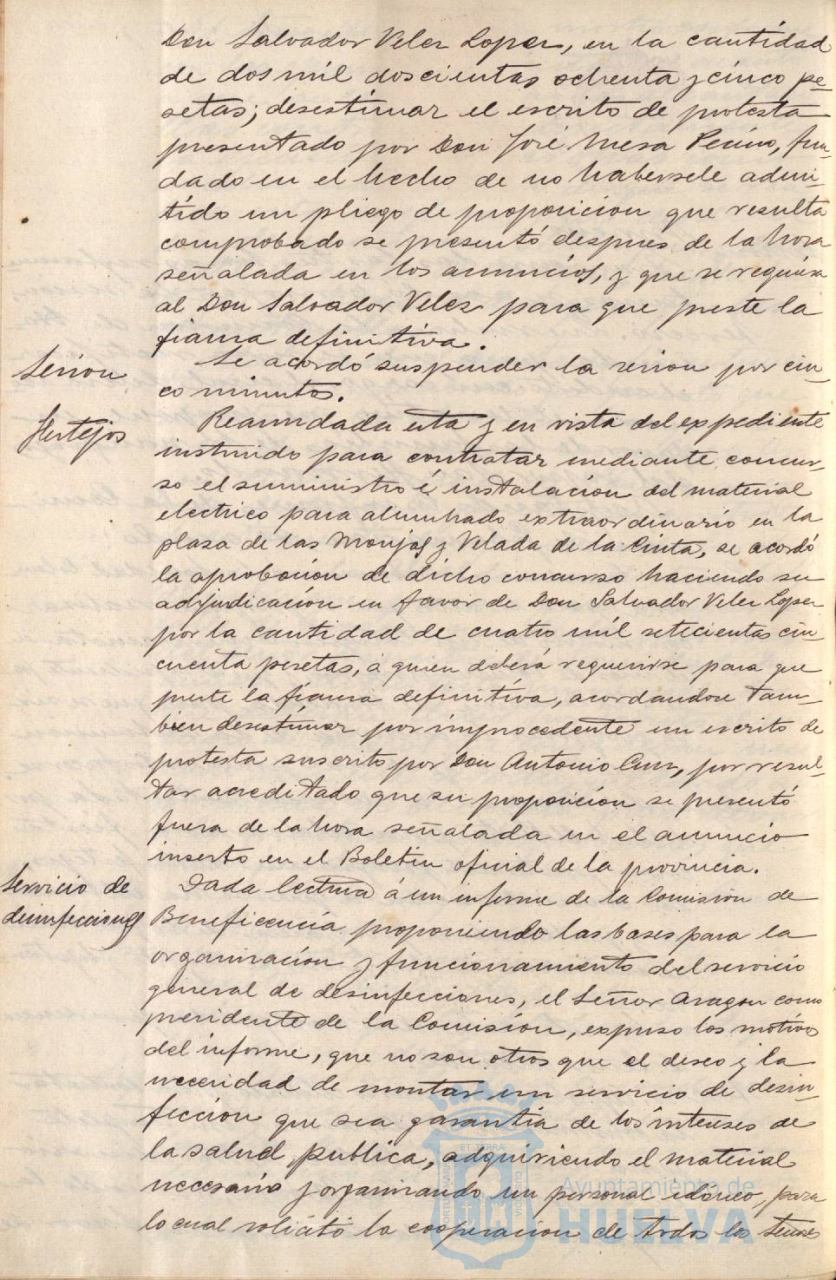 Don Salvador Velez Lopez, en la cantidad
de dos mil doscientas ochenta y cinco pe-
setas; desestimar el escrito de protesta
presentado por Don José Mesa Pecino, fun-
dado en el hecho de no habersele admi-
tido un pliego de proposicion que resulta
comprobado se presentó despues de la hora
señalada en los anuncios, y que se requiera
al Don Salvador Velez para que preste la
fianza definitiva.
Sesion
Se acordó suspender la sesion por cin-
co minutos.
Festejos
Reanudada esta y en vista del expediente
instruido para contratar mediante concur-
so el suministro é instalacion del material
electrico para alumbrado extraordinario en la
plaza de las Monjas y Velada de la Cinta, se acordó
la aprobacion de dicho concurso haciendo su
adjudicación en favor de Don Salvador Velez Lopez
por la cantidad de cuatro mil setecientas cin-
cuenta pesetas, á quien deberá requerirse para que
preste la fianza definitiva, acordandose tam-
bien desestimar por improcedente un escrito de
protesta suscrito por Don Antonio Cruz, por resul-
tar acreditado que su proposición se presentó
fuera de la hora señalada en el anuncio
inserto en el Boletin oficial de la provincia.
Servicio de
desinfecciones
Dada lectura á un informe de la Comision de
Beneficencia proponiendo las bases para la
organizacion y funcionamiento del servicio
general de desinfecciones, el Señor Aragon como
presidente de la Comisión, expuso los motivos
del informe, que no son otros que el deseo y la
necesidad de montar un servicio de desin-
feccion que sea garantia de los intereses de
la salud publica, adquiriendo el material
necesario y organizando un personal idoneo, para
lo cual solicitó la cooperacion de todos los Señores
Ayuntamiento de
HUELVA